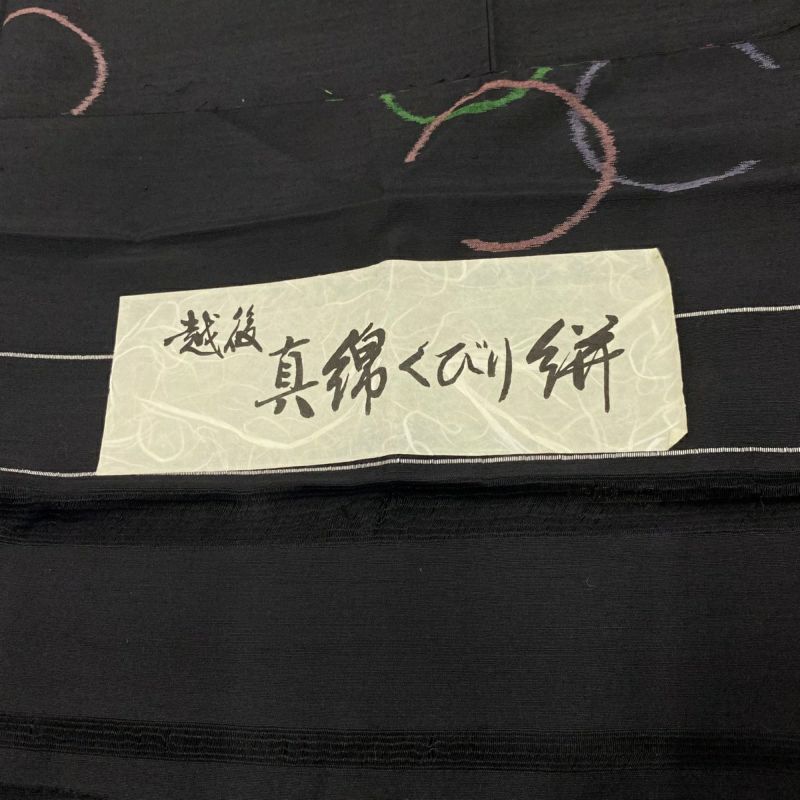 越後 真綿くびり絣